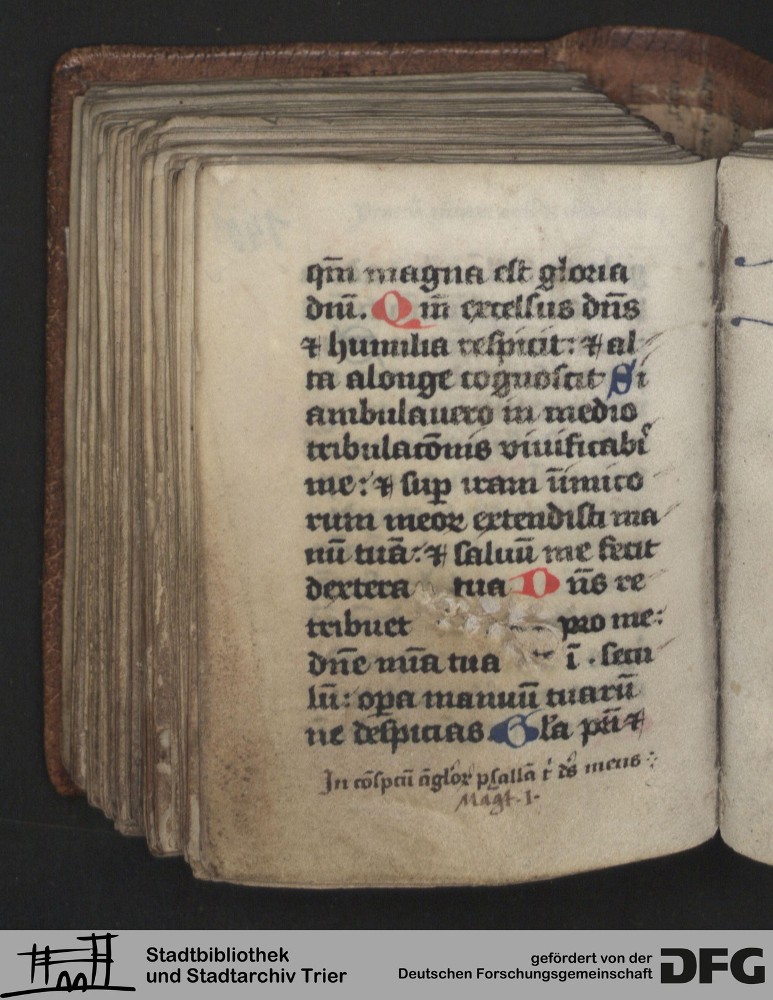 qm̄ magna est gloria
dnī. Qm̄ excelsus dn̄s
⁊ humilia respicit: ⁊ al
ta alonge cognoscit Si
ambulauero in medio
tribulacōnis viuificabis
me: ⁊ sup iram īnimico
rum meoꝝ extendisti ma
nū tuā: ⁊ saluū me fecit
dextera tua Dn̄s re
tribuet pro me:
dn̄e mīa tua ī. secu
lū: oꝑa manuū tuarū
ne despicias Gl̄a pr̄i ⁊
In cōspcū āgloꝝ psallā t' ds meus
Magt. 1.
Stadtbibliothek
und Stadtarchiv Trier
gefördert von der
Deutschen Forschungsgemeinschaft
DFG